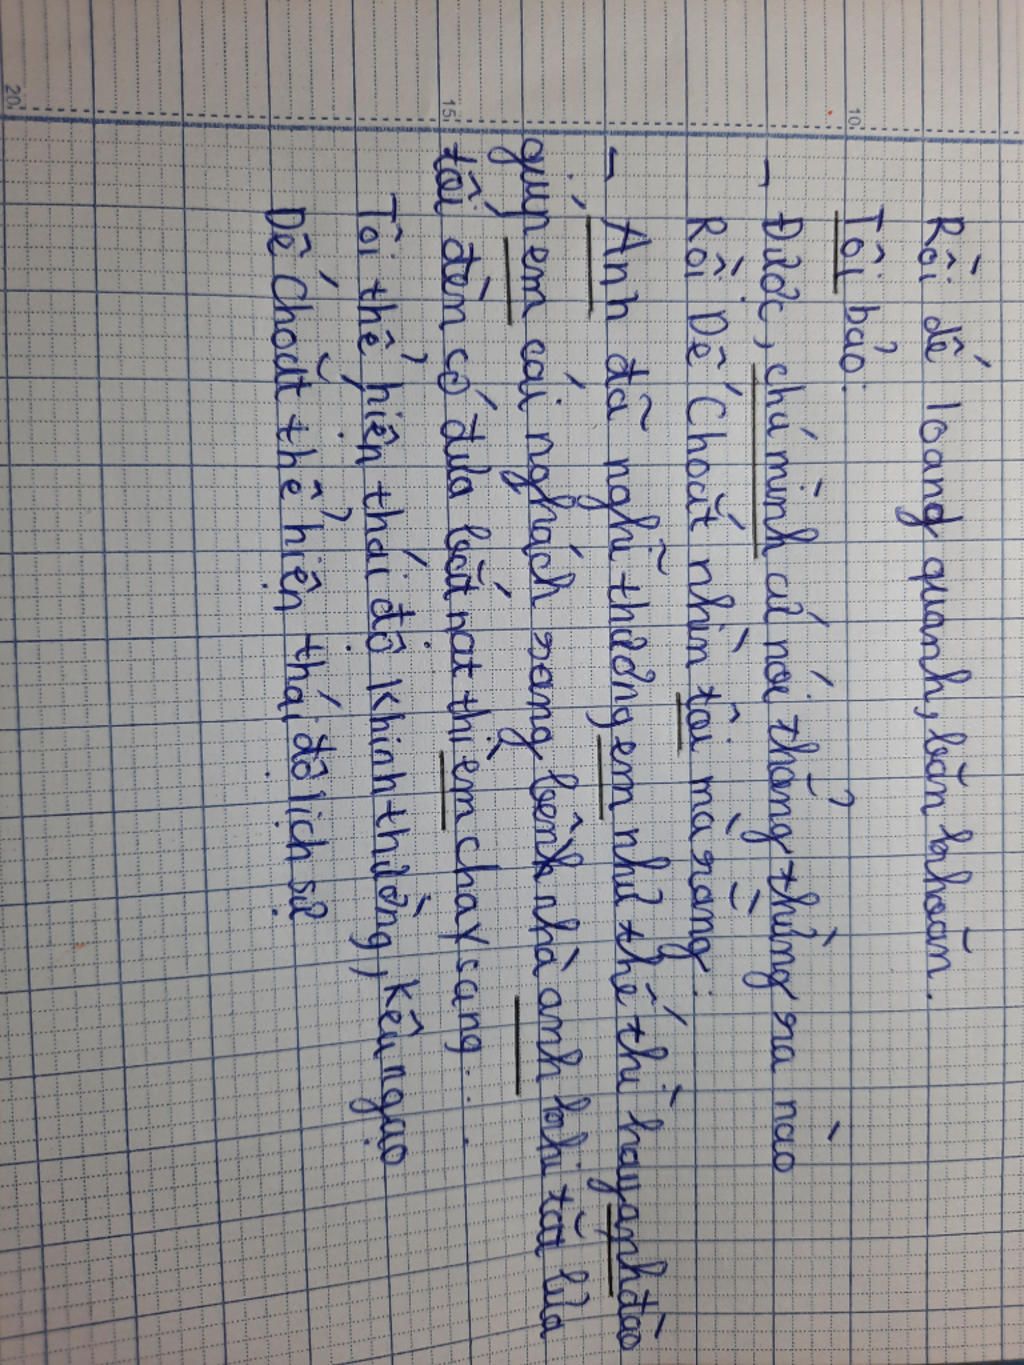 Rồi dế loang quanh, băn khoăn.
Tôi bảo:
- Được, chú mình cứ nói thẳng thừng ra nào
Rồi Dế Choắt nhìn tôi mà rằng:
- Anh đã nghĩ thương em như thế thì hay anh đào
giúp em cái nghách sang bênh nhà anh khi tắt lửa
tối đèn có đứa bắt nạt thì em chạy sang...
Tôi thể hiện thái độ khinh thường, kêu ngạo
Dế Choắt thể hiện thái độ lịch sử
10
15
20